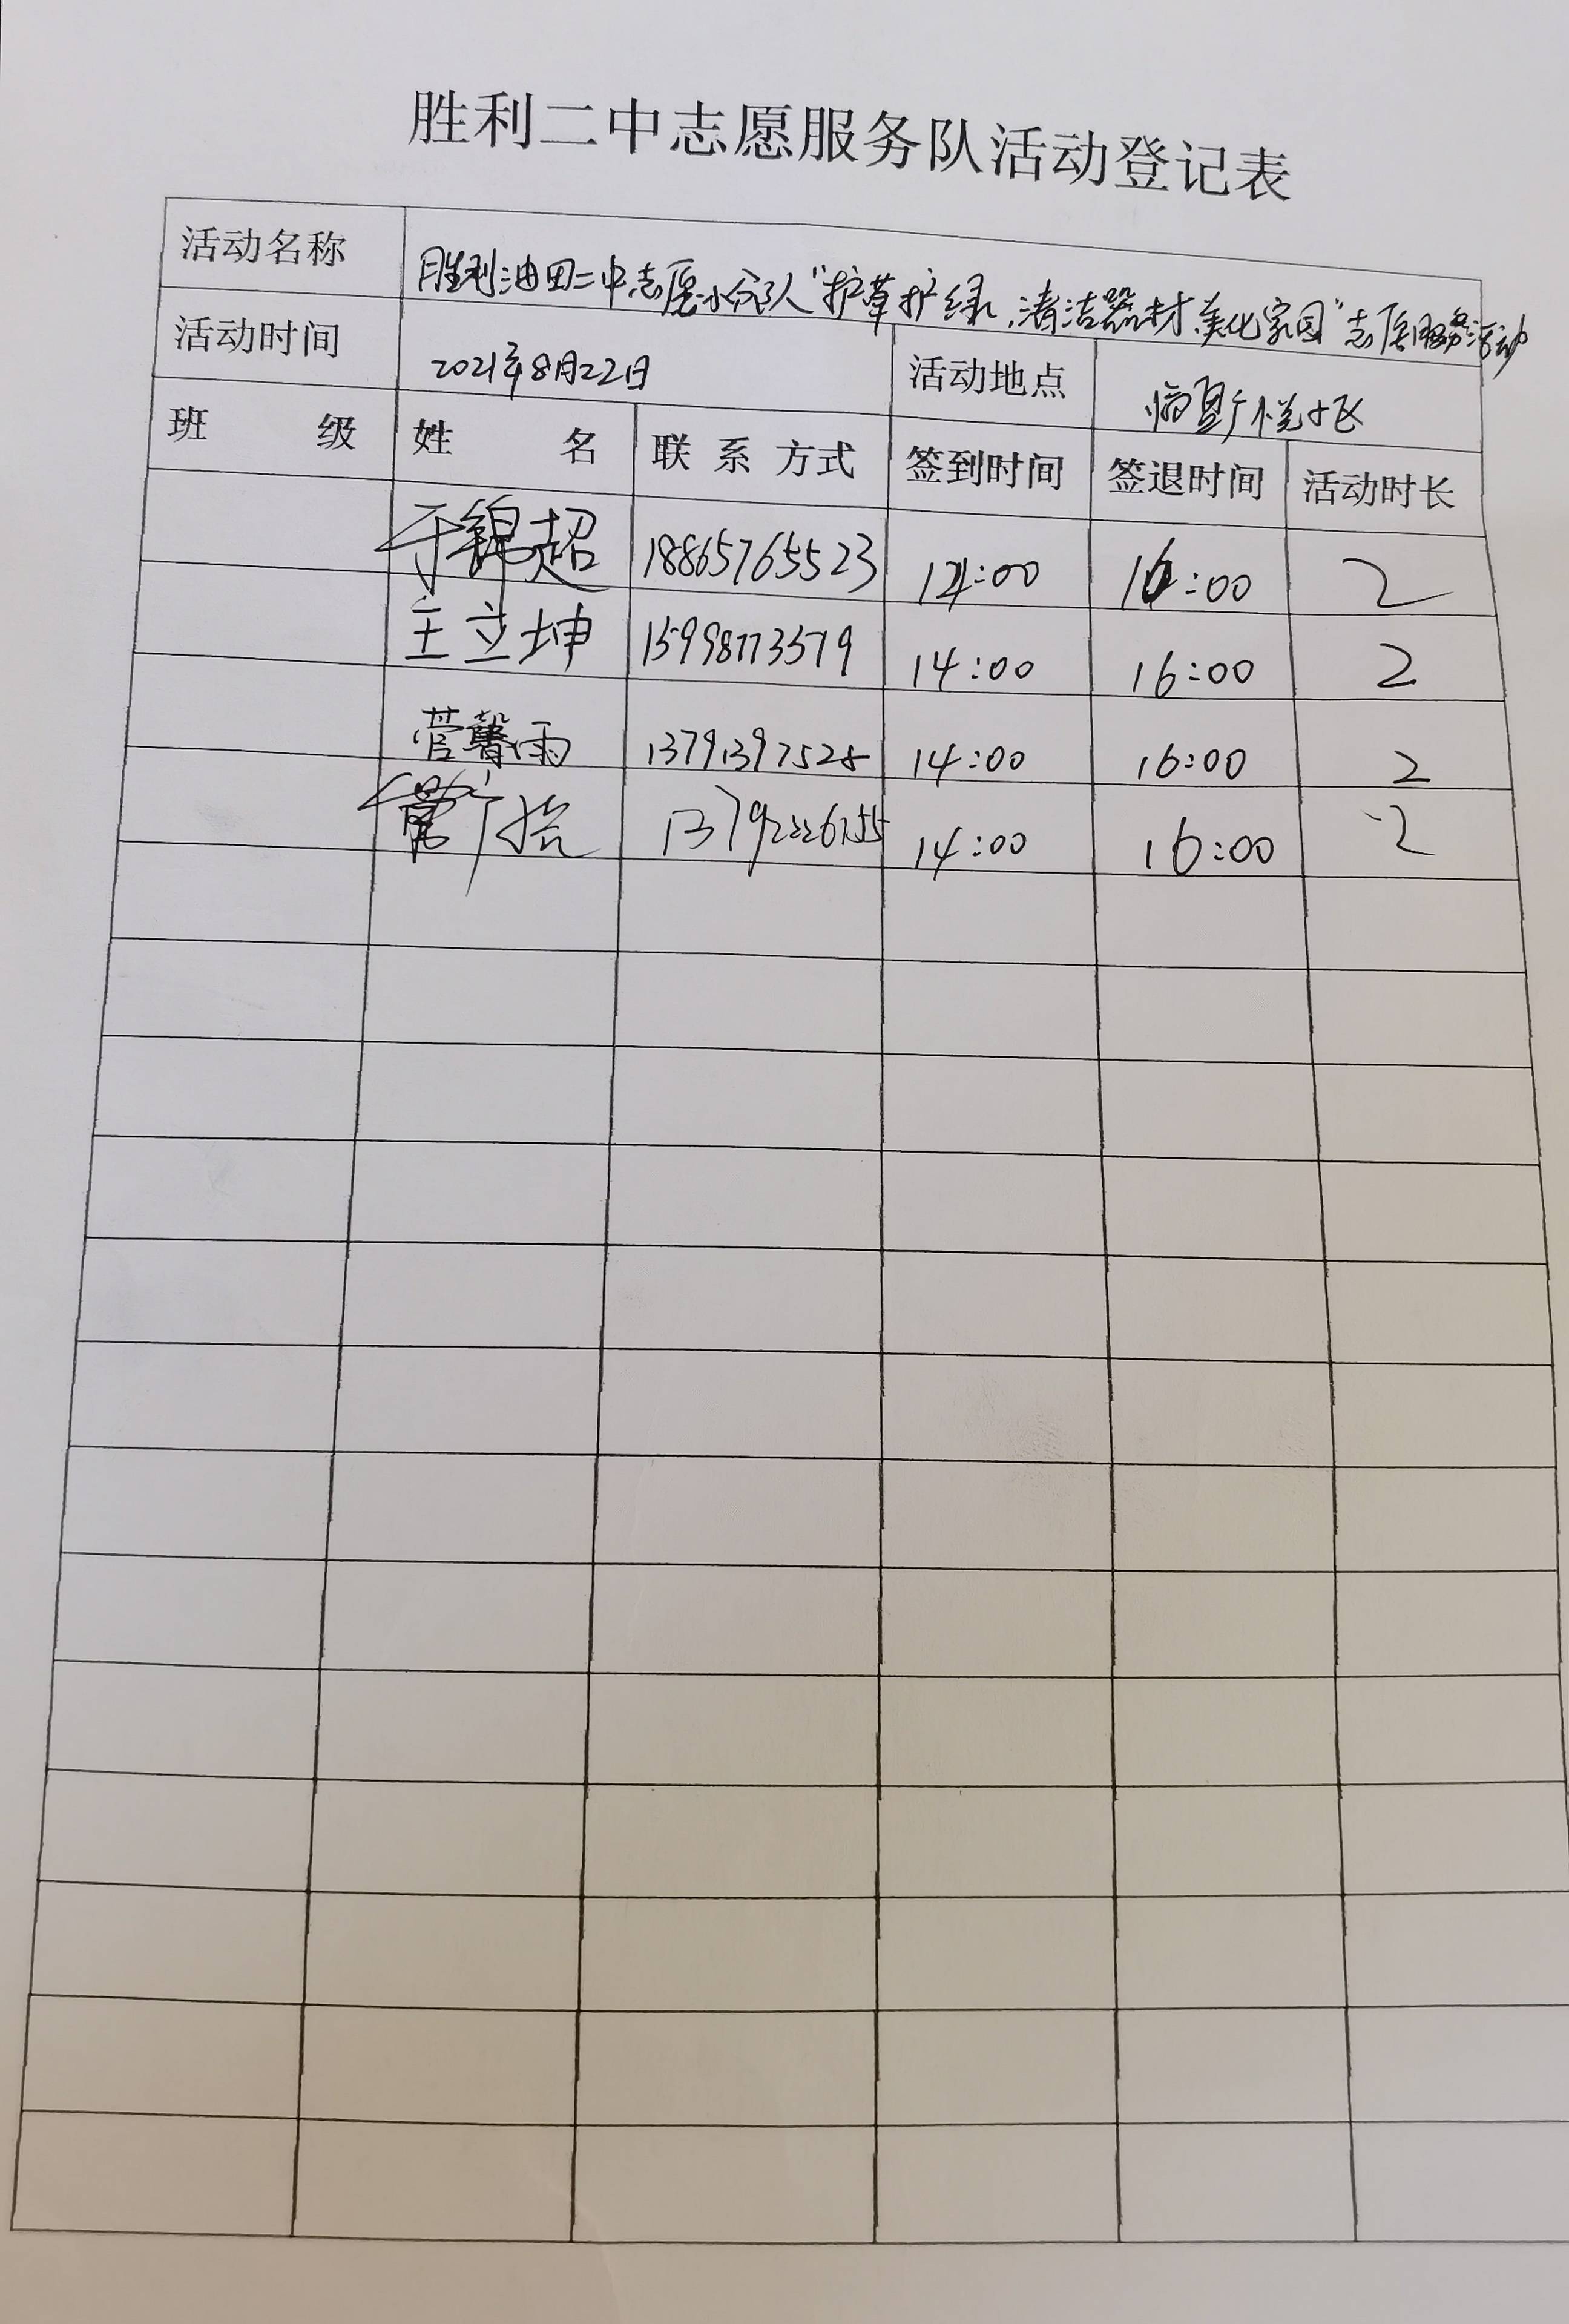 胜利二中志愿服务队活动登记表
活动名称 胜利油田二中志愿小分队“护草护绿,清洁器材,美化家园”志愿服务活动
活动时间 2021年8月22日 活动地点
班 级 姓 名 联 系 方式 签到时间 签退时间 活动时长
于锦超 18865765523 14:00 16:00 2
王立坤 15998773579 14:00 16:00 2
菅馨雨 13791397528 14:00 16:00 2
14:00 16:00 2